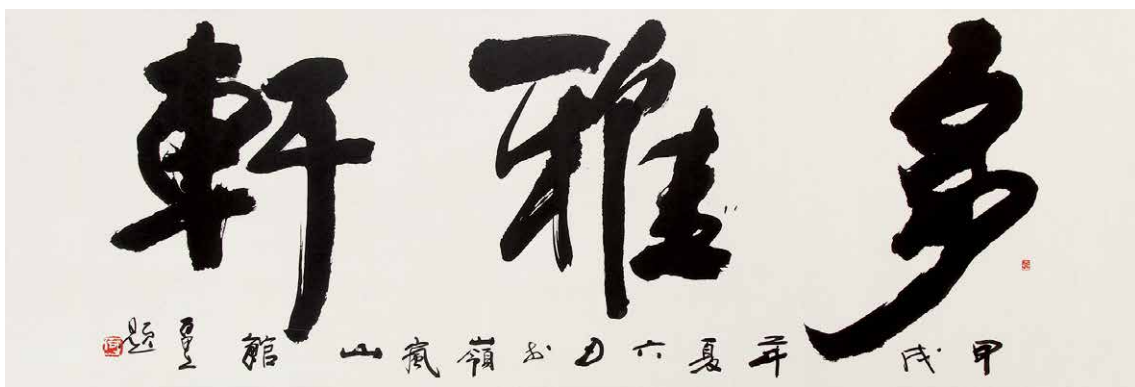 多雅軒
甲戌年夏六月於嶺嵐山館題